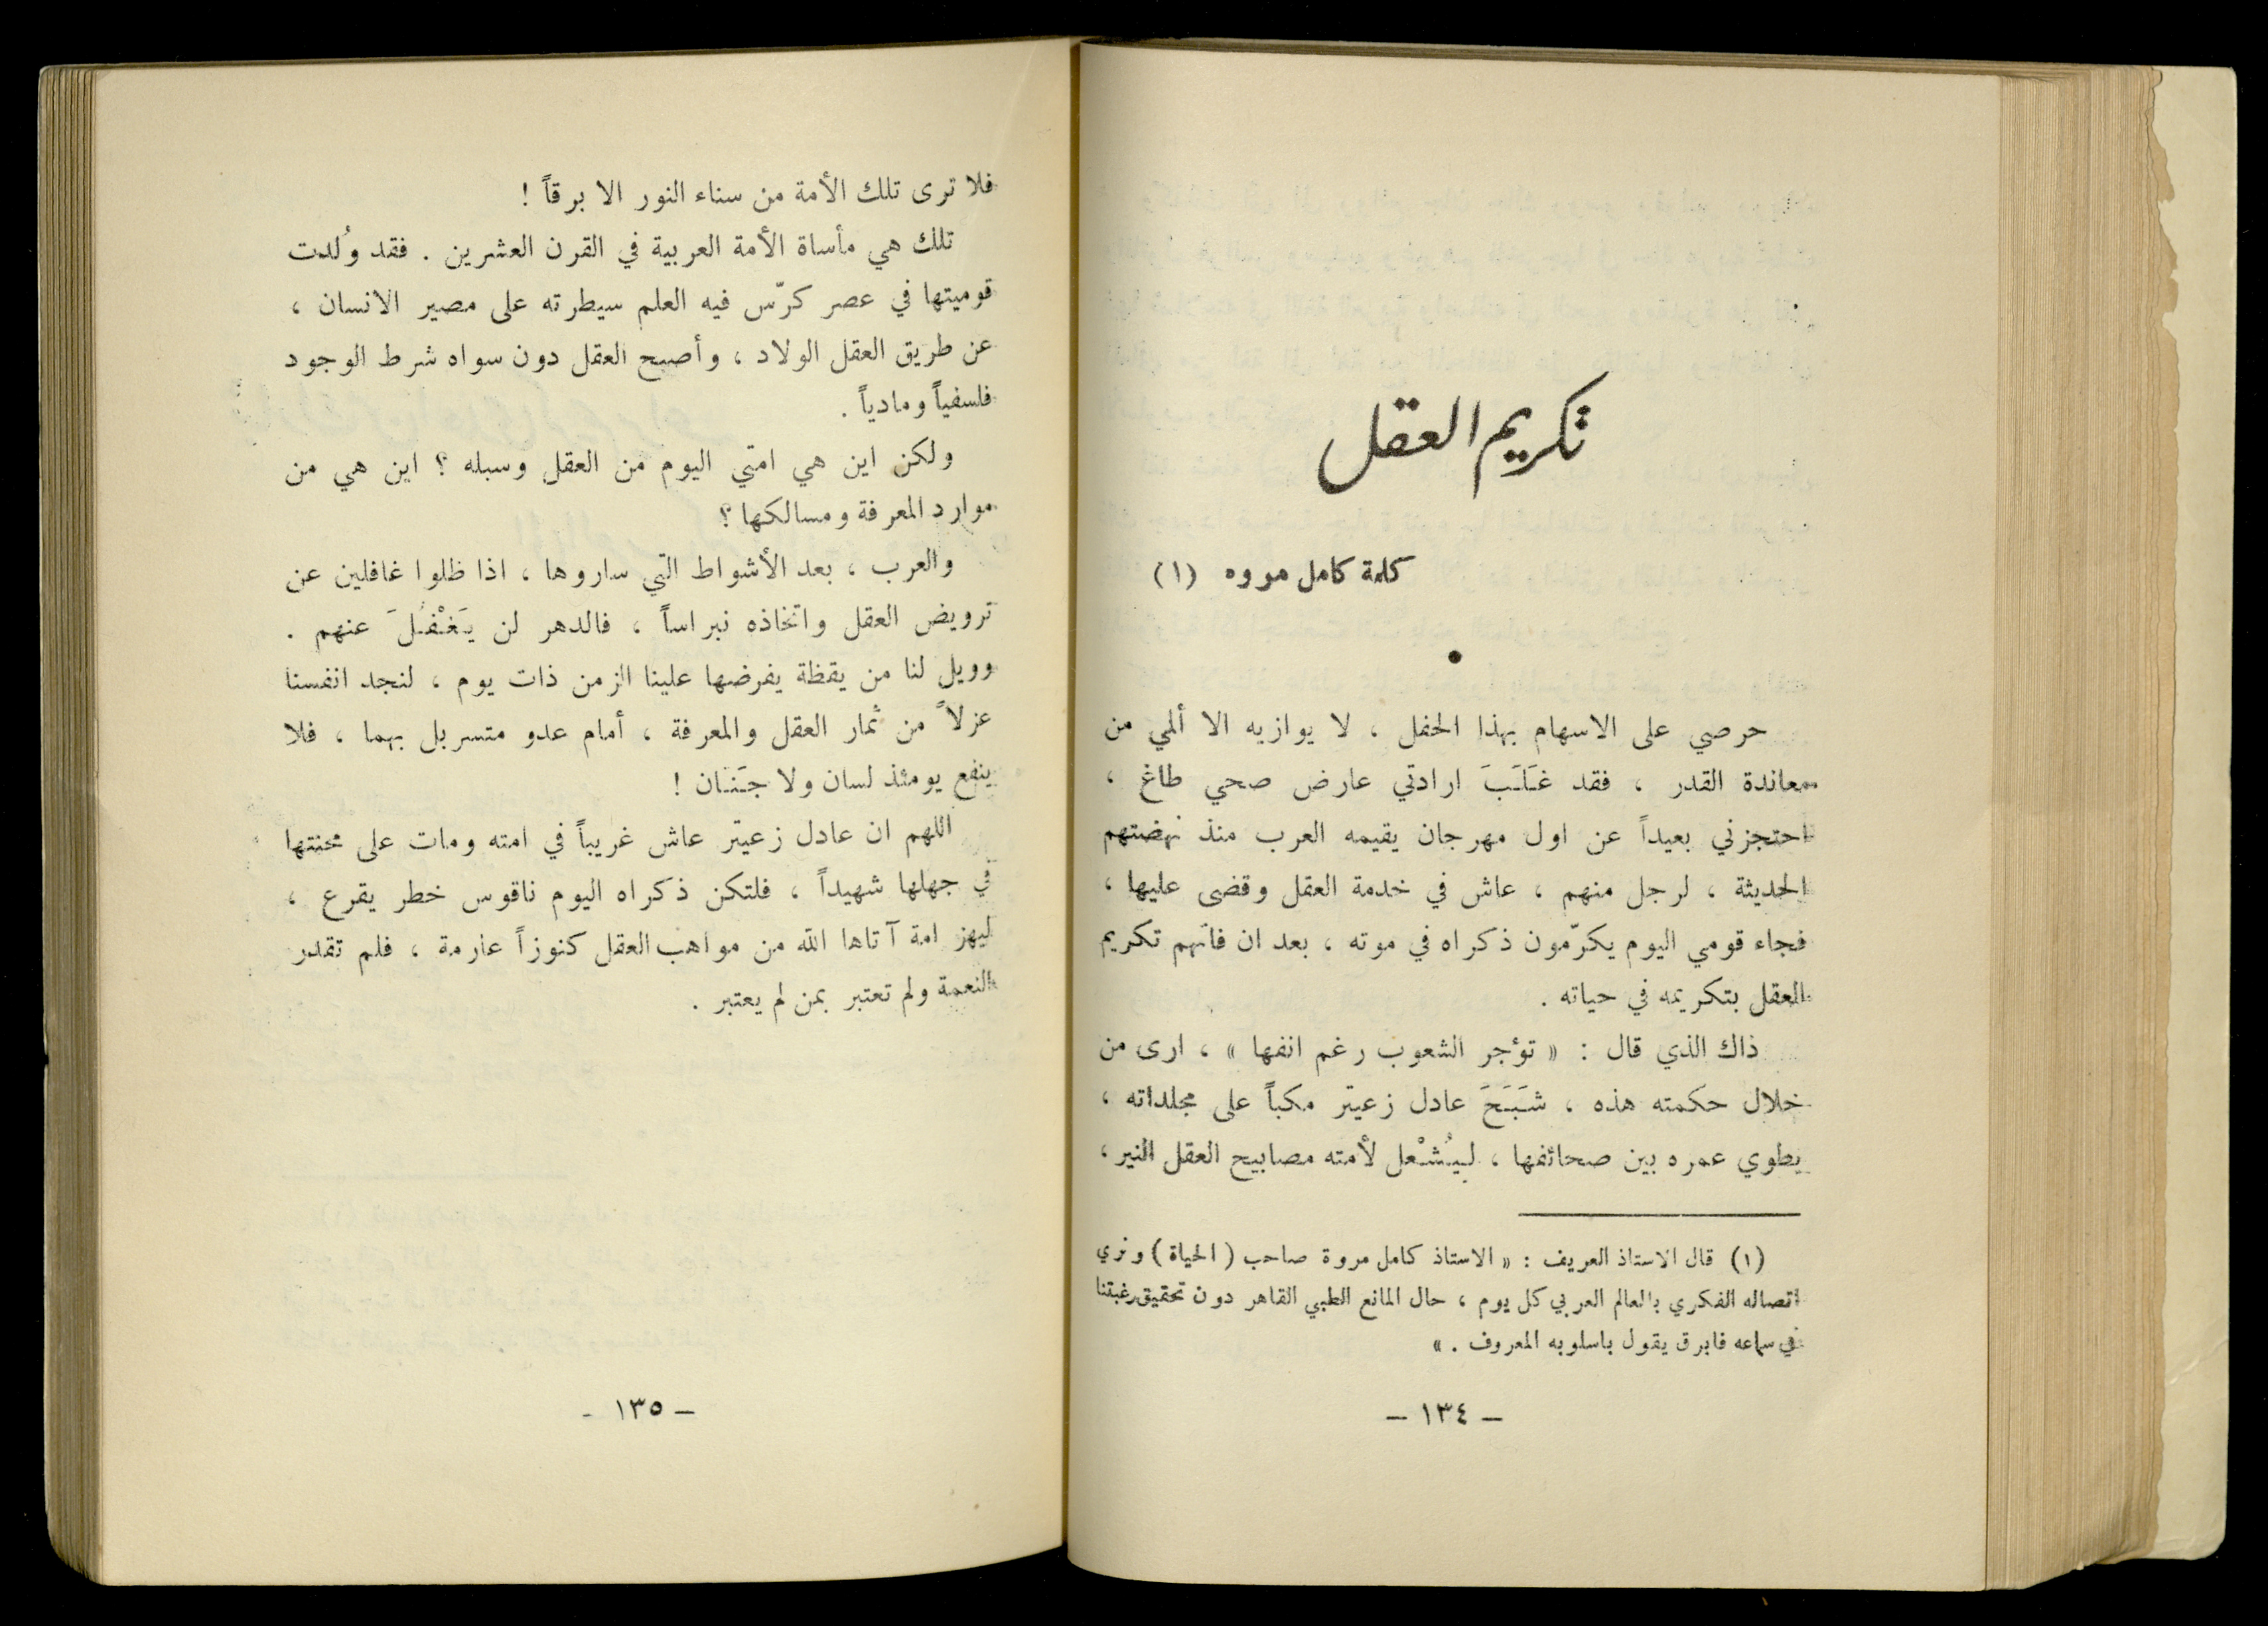 تكريم العقل
كلمة كامل مروه (١)
حرصي على الاسهام بهذا الحفل ، لا يوازيه الا ألمي من
معاندة القدر ، فقد غَلَبَ ارادتي عارض صحي طاغ ،
احتجزني بعيداً عن اول مهرجان يقيمه العرب منذ نهضتهم
الحديثة ، لرجل منهم ، عاش في خدمة العقل وقضى عليها ،
فجاء قومي اليوم يكرّمون ذكراه في موته ، بعد ان فاتهم تكريم
العقل بتكريمه في حياته .
ذاك الذي قال : « تؤجر الشعوب رغم انفها » ، ارى من
خلال حكمته هذه ، شَبَحَ عادل زعيتر مكباً على مجلداته ،
يطوي عمره بين صحائفها ، ليُشْعل لأمته مصابيح العقل النير ،
(١) قال الاستاذ العريف : « الاستاذ كامل مروة صاحب ( الحياة ) ونري
اتصاله الفكري بالعالم العربي كل يوم ، حال المانع الطبي القاهر دون تحقيق رغبتنا
في سماعه فابرق يقول باسلوبه المعروف . »
– ١٣٤ –
فلا ترى تلك الأمة من سناء النور الا برقاً !
تلك هي مأساة الأمة العربية في القرن العشرين . فقد وُلدت
قوميتها في عصر كرّس فيه العلم سيطرته على مصير الانسان ،
عن طريق العقل الولاد ، وأصبح العقل دون سواه شرط الوجود
فلسفياً ومادياً .
ولكن اين هي امتي اليوم من العقل وسبله ؟ اين هي من
موارد المعرفة ومسالكها ؟
والعرب ، بعد الأشواط التي ساروها ، اذا ظلوا غافلين عن
ترويض العقل واتخاذه نبراساً ، فالدهر لن يَغْفُلَ عنهم .
وويل لنا من يقظة يفرضها علينا الزمن ذات يوم ، لنجد انفسنا
عزلاً من ثمار العقل والمعرفة ، أمام عدو متسربل بهما ، فلا
ينفع يومئذ لسان ولا جَنَان !
اللهم ان عادل زعيتر عاش غريباً في امته ومات على محنتها
في جهلها شهيداً ، فلتكن ذكراه اليوم ناقوس خطر يقرع ،
ليهز امة آتاها الله من مواهب العقل كنوزاً عارمة ، فلم تقدر
النعمة ولم تعتبر بمن لم يعتبر .
– ١٣٥ -